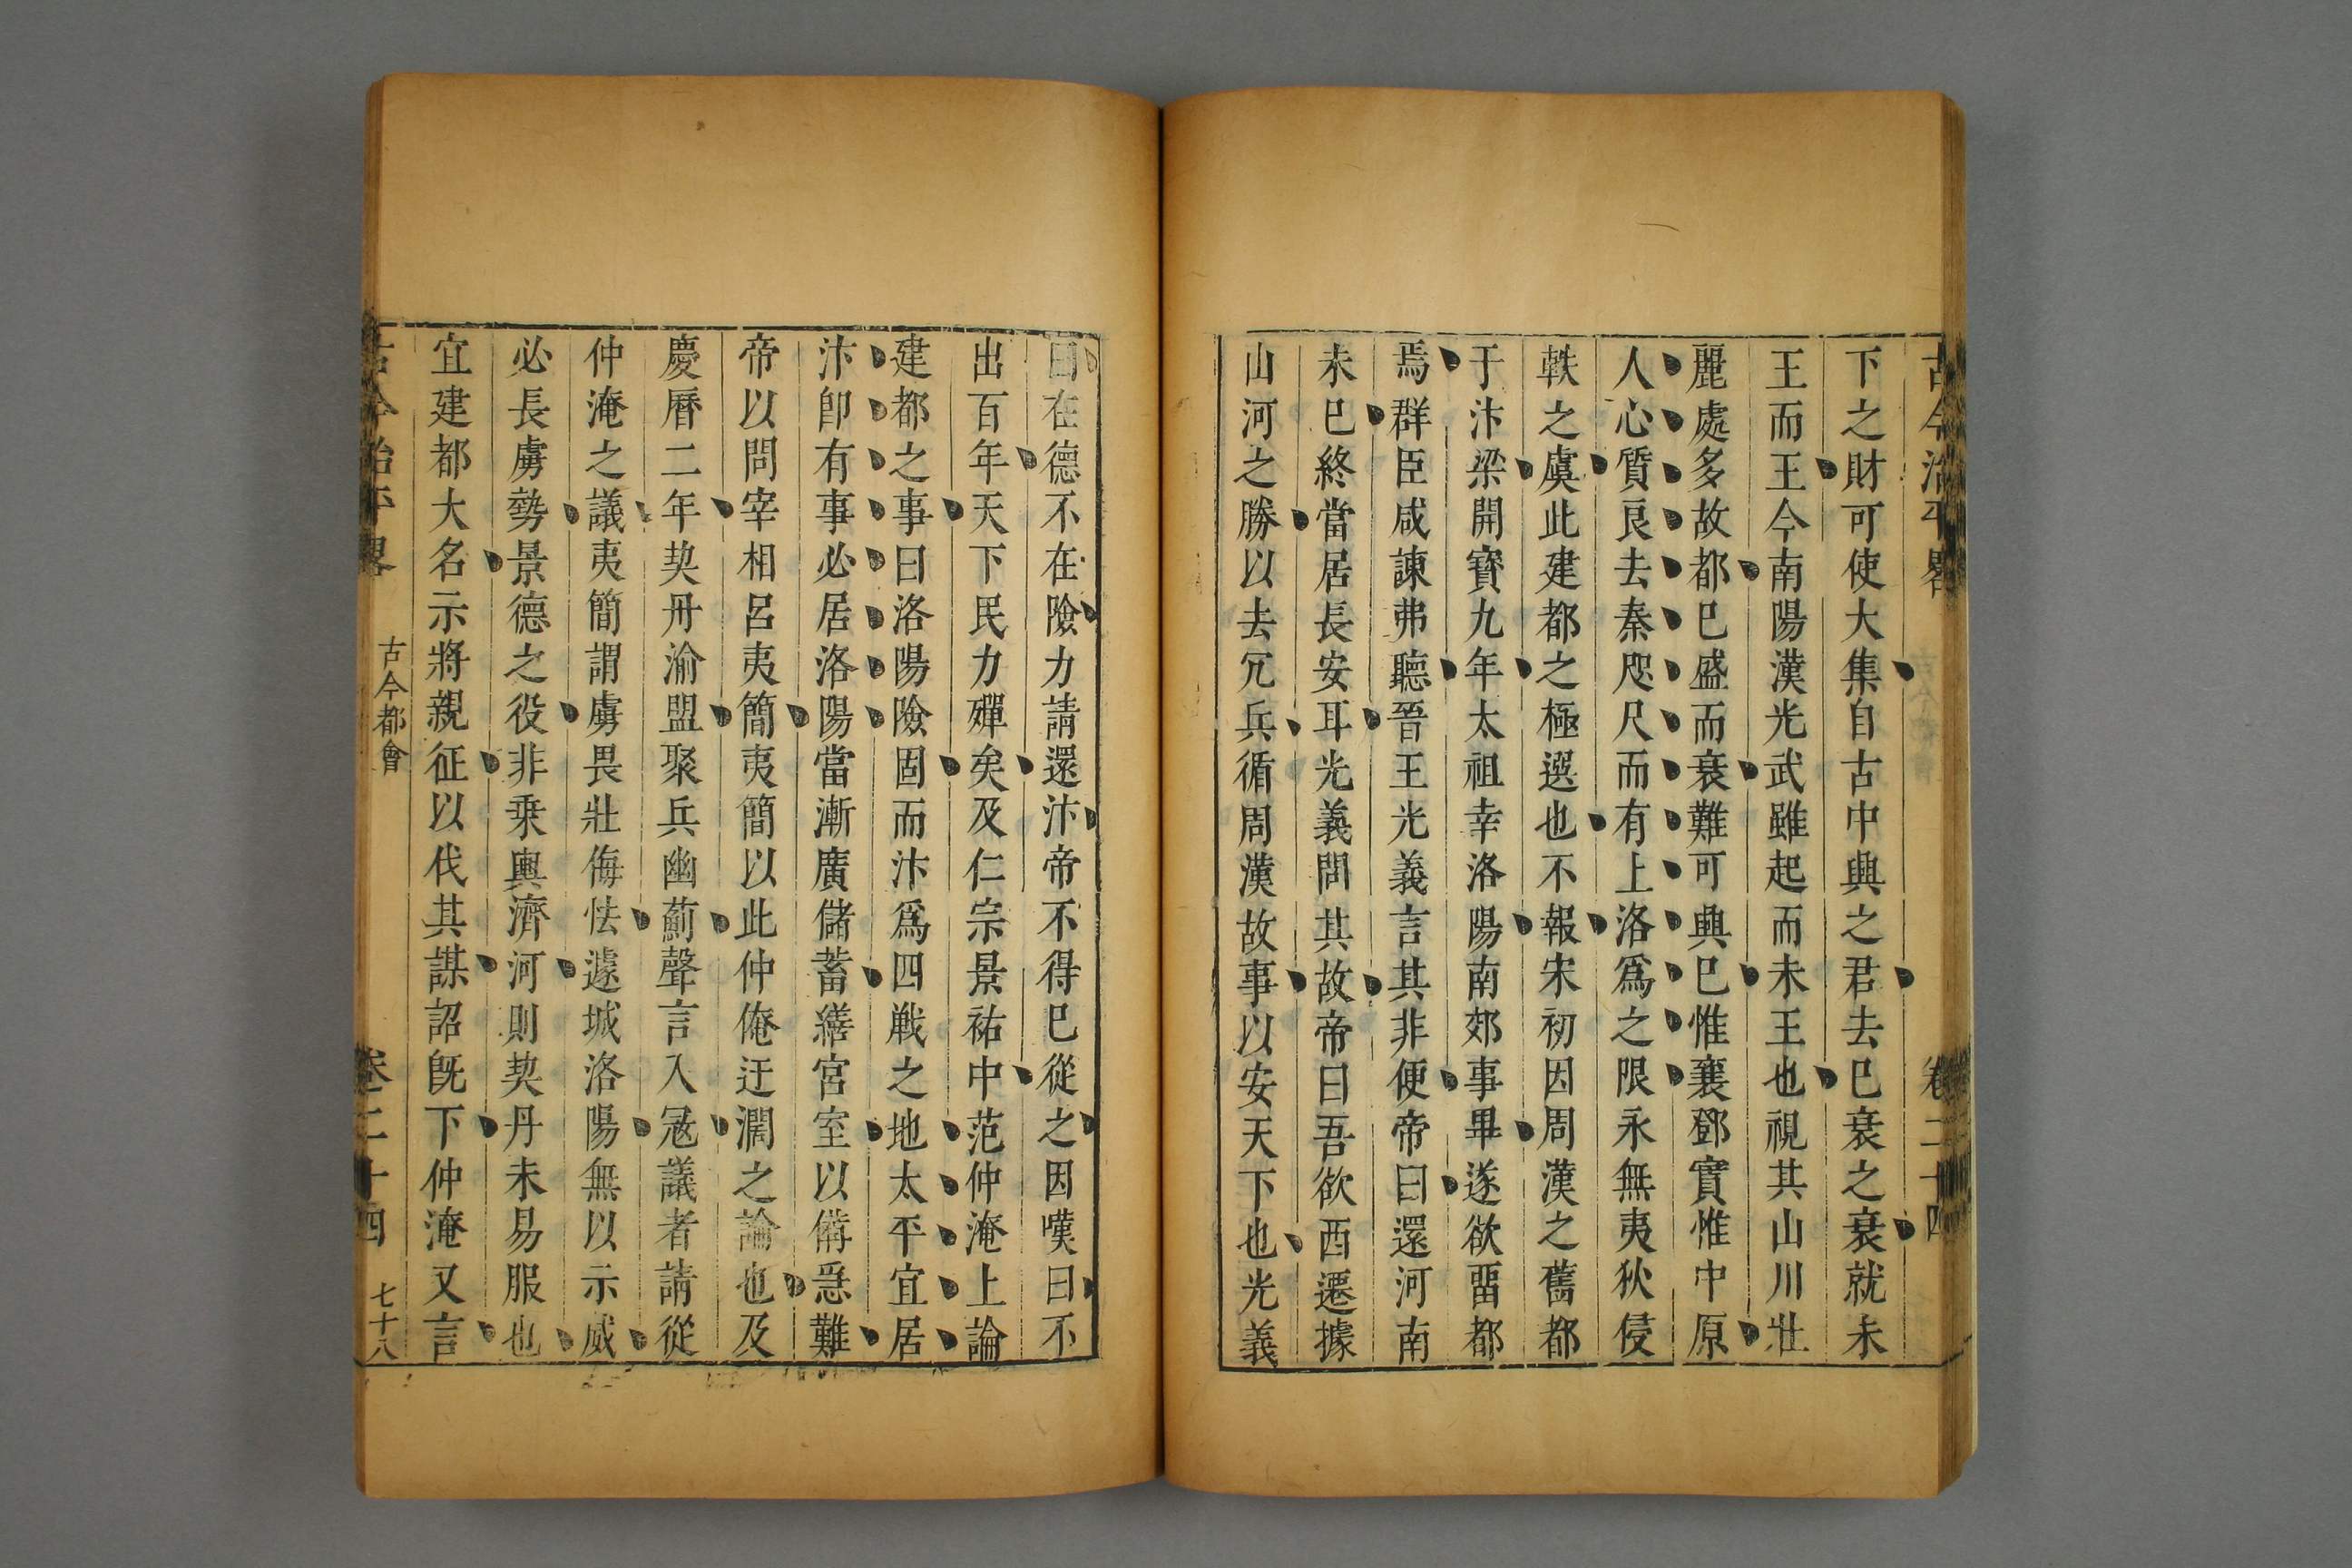 古今治平畧
卷二十四
下之財可使大集自古中興之君去已衰之衰就未
王而王今南陽漢光武雖起而未王也視其山川壯
麗處多故都已盛而衰難可興已惟襄鄧實惟中原
人心質良去秦咫尺而有上洛爲之限永無夷狄侵
軼之虞此建都之極選也不報宋初因周漢之舊都
于汴梁開寳九年太祖幸洛陽南郊事畢遂欲畱都
焉群臣咸諫弗聽晉王光義言其非便帝曰還河南
未已終當居長安耳光義問其故帝曰吾欲西遷據
山河之勝以去冗兵循周漢故事以安天下也光義
曰在德不在險力請還汴帝不得已從之因嘆曰不
出百年天下民力殫矣及仁宗景祐中范仲淹上論
建都之事曰洛陽險固而汴爲四戰之地太平宜居
汴卽有事必居洛陽當漸廣儲蓄繕宮室以備急難
帝以問宰相呂夷簡夷簡以此仲俺迂濶之論也及
慶曆二年契丹渝盟聚兵幽薊聲言入冦議者請從
仲淹之議夷簡謂虜畏壯侮怯遽城洛陽無以示威
必長虜勢景德之役非乗輿濟河則契丹未易服也
宜建都大名示將親征以伐其謀詔旣下仲淹又言
古今治平畧
古今都會
卷二十四
七十八